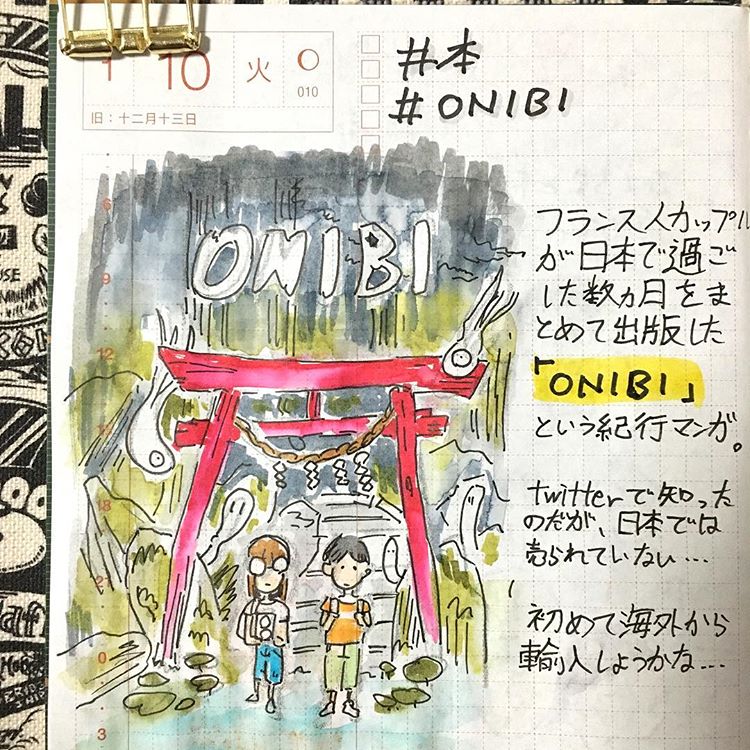 1
10
火
010
旧：十二月十三日
#本
#ONIBI
6
ONIBI
9
12
18
21
0
3
フランス人カップル
が日本で過ご
した数ヵ月をま
とめて出版した
「ONIBI」
という紀行マンガ。
twitterで知った
のだが、日本では
売られていない…
初めて海外から
輸入しようかな…